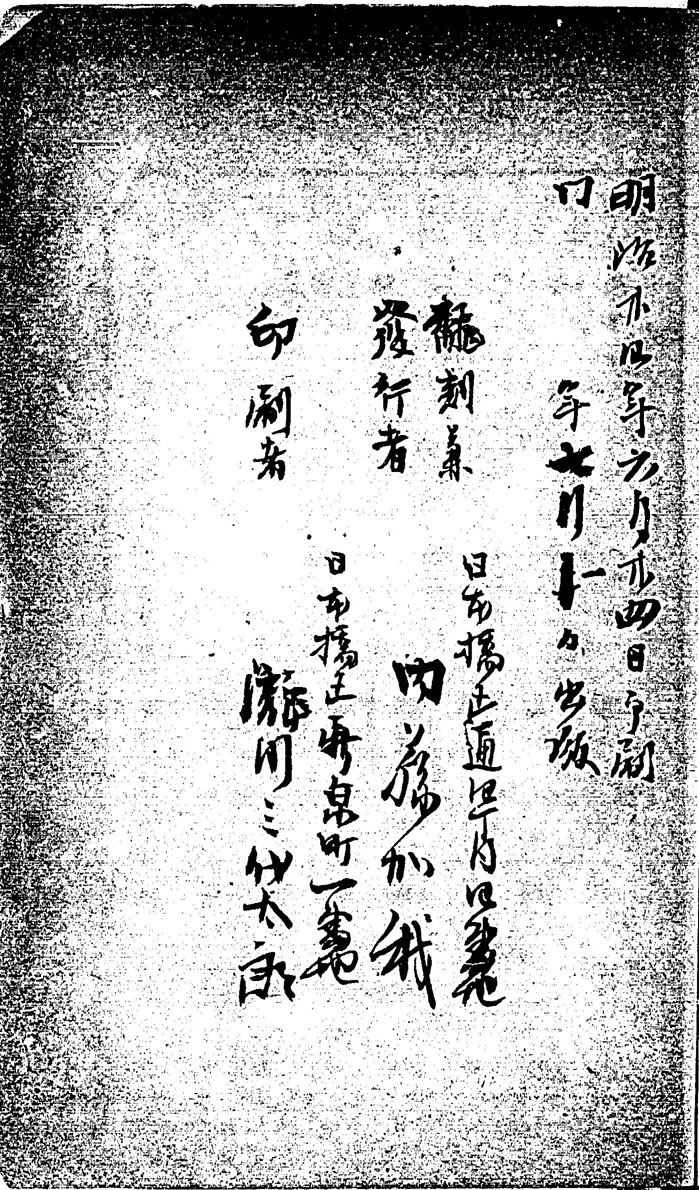 明治廿四年六月廿四日印刷
同年七月日出版
翻刻兼
發行者
日本橋区通四丁目四番地
内藤加我
印刷者
日本橋区新泉町一番地
瀧川三代太郎